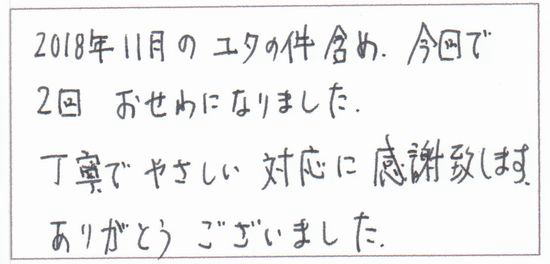 2018年11月の ユタの件含め. 今回で
2回 おせわになりました.
丁寧で やさしい 対応に 感謝致します.
ありがとう ございました.